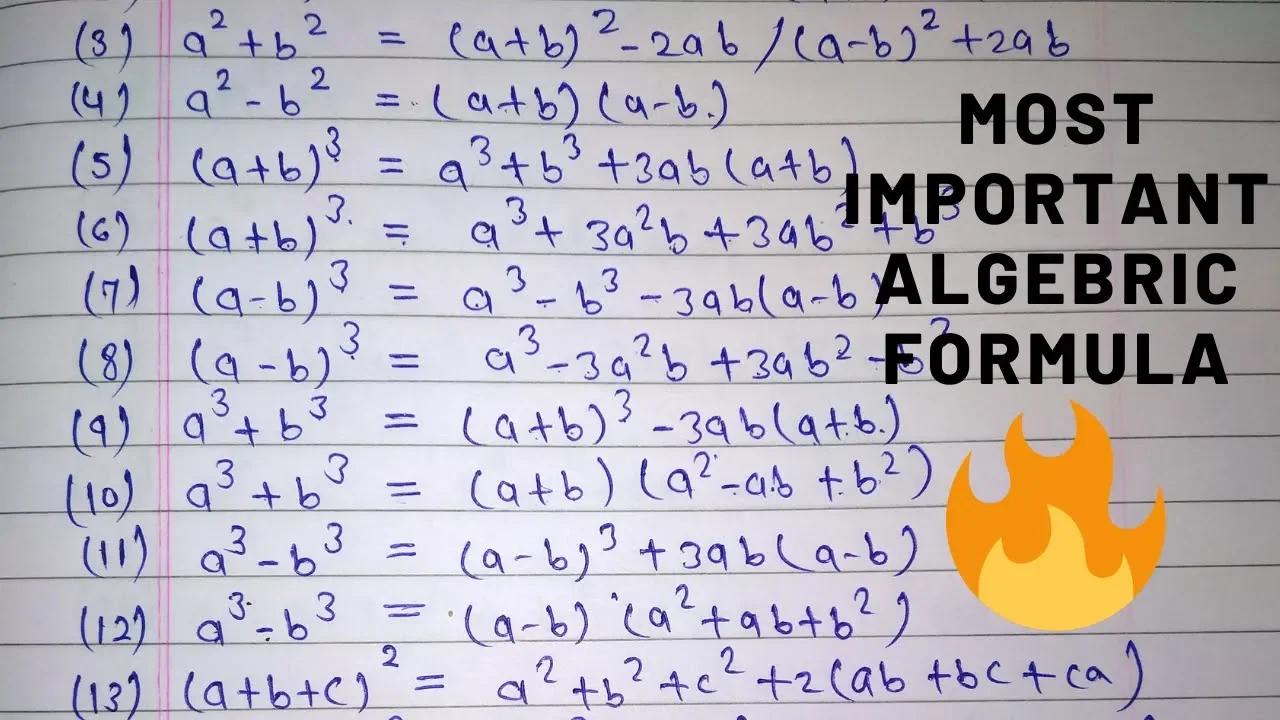 (3) a² + b² = (a+b)² - 2ab / (a-b)² + 2ab
(4) a² - b² = (a+b) (a-b)
(5) (a+b)³ = a³ + b³ + 3ab (a+b)
(6) (a+b)³ = a³ + 3a²b + 3ab² + b³
(7) (a-b)³ = a³ - b³ - 3ab(a-b)
(8) (a-b)³ = a³ - 3a²b + 3ab² - b³
(9) a³ + b³ = (a+b)³ - 3ab(a+b)
(10) a³ + b³ = (a+b) (a² - ab + b²)
(11) a³ - b³ = (a-b)³ + 3ab(a-b)
(12) a³ - b³ = (a-b) (a² + ab + b²)
(13) (a+b+c)² = a² + b² + c² + 2(ab + bc + ca)
MOST
IMPORTANT
ALGEBRIC
FORMULA